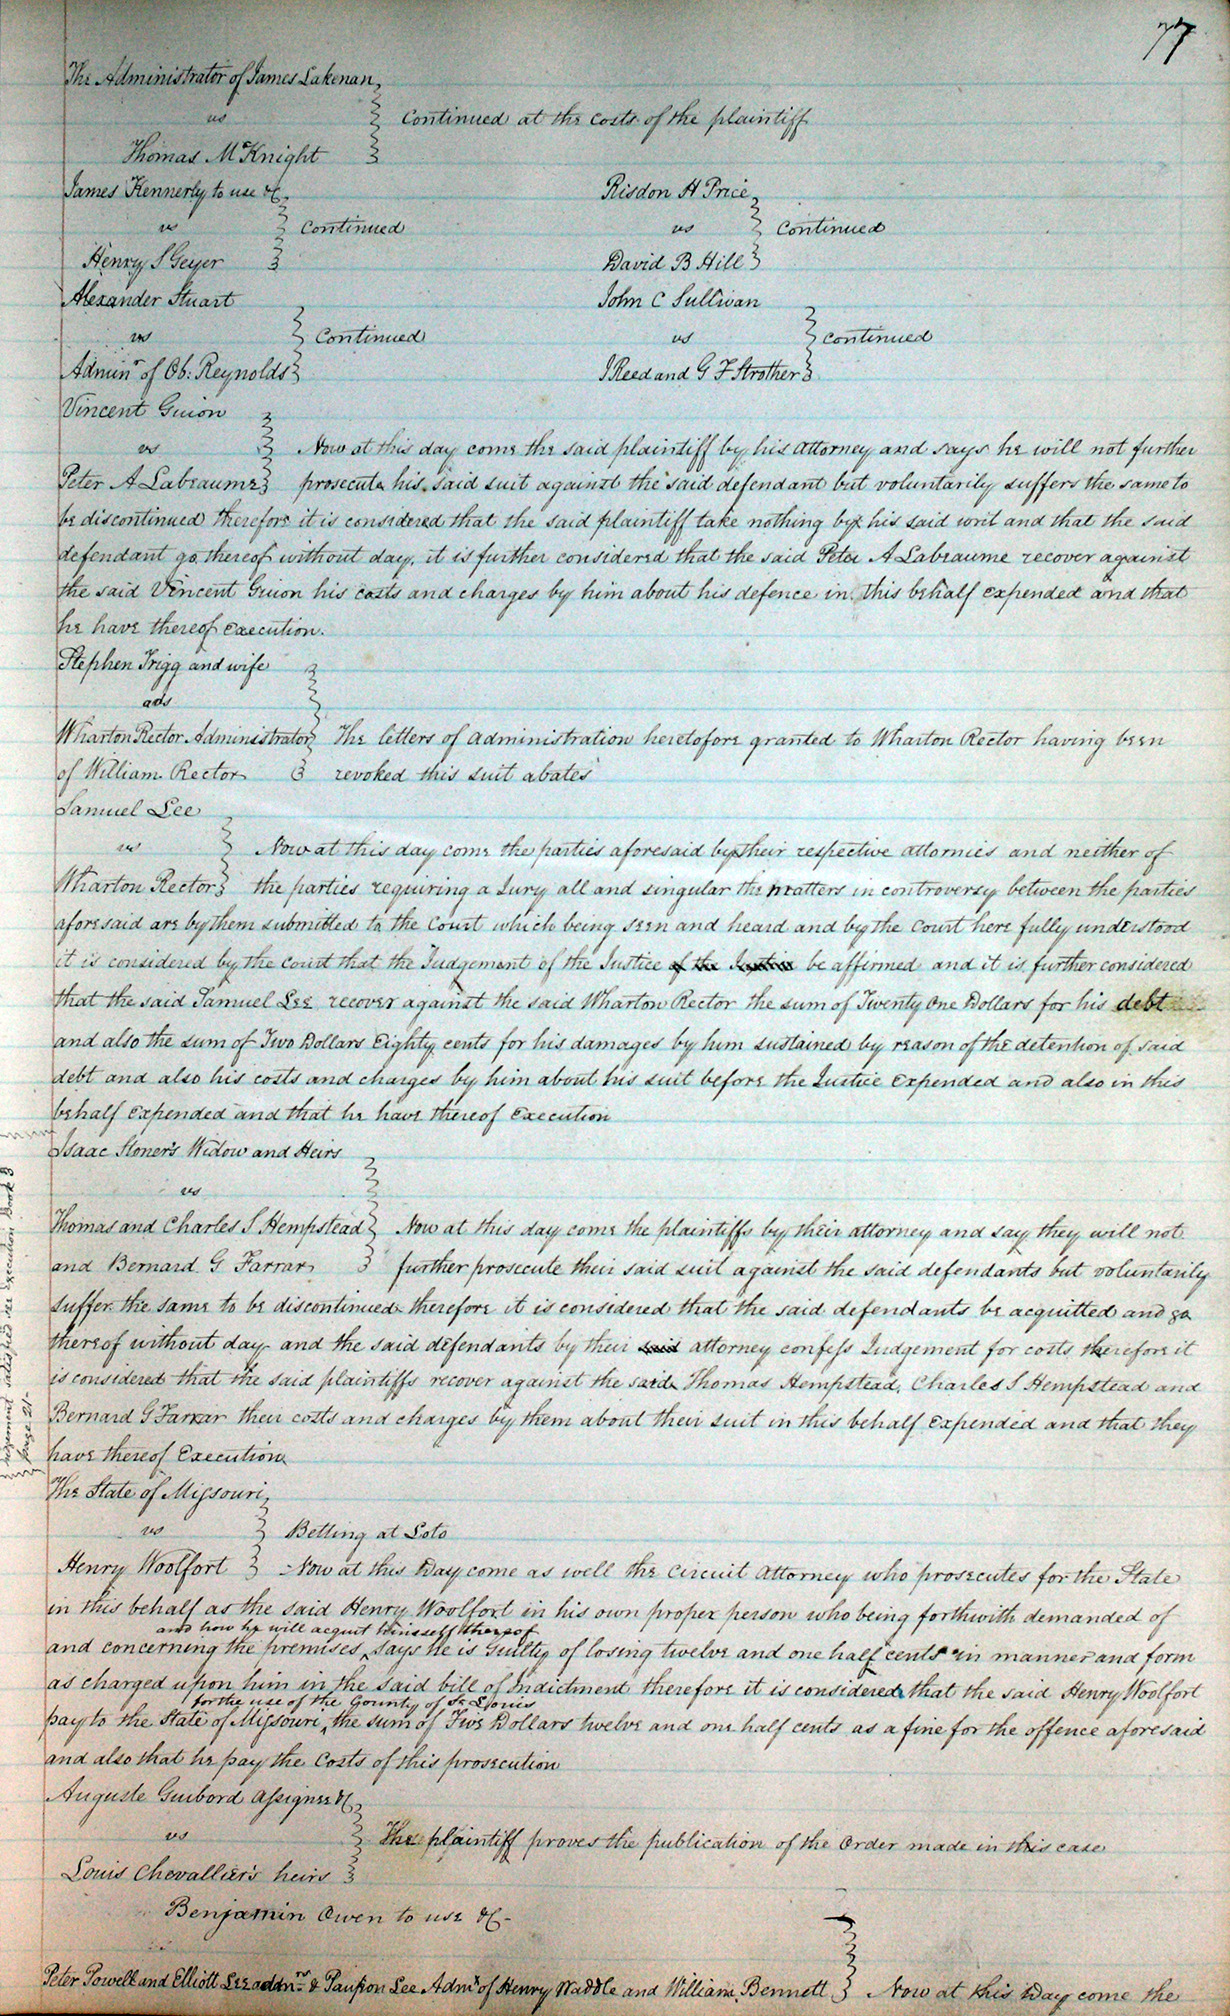 77
The Administrator of James Lakenan
vs
Continued at the costs of the plaintiff
Thomas McKnight
James Kennerly to use &c
vs
Continued
Henry S Geyer
Risdon H Price
vs
Continued
David B Hill
Alexander Stuart
vs
Continued
Adminr of Ob: Reynolds
John C Sullivan
vs
Continued
J Reed and G F Strother
Vincent Guion
vs
Peter A Labeaume
Now at this day come the said plaintiff by his attorney and says he will not further
prosecute his said suit against the said defendant but voluntarily suffers the same to
be discontinued therefore it is considered that the said plaintiff take nothing by his said writ and that the said
defendant go thereof without day. it is further considered that the said Peter A Labeaume recover against
the said Vincent Guion his costs and charges by him about his defence in this behalf expended and that
he have thereof execution.
Stephen Trigg and wife
ads
Wharton Rector Administrator
of William Rector
The letters of administration heretofore granted to Wharton Rector having been
revoked this suit abates
Samuel Lee
vs
Wharton Rector
Now at this day come the parties aforesaid by their respective attornies and neither of
the parties requiring a Jury all and singular the matters in controversy between the parties
aforesaid are by them submitted to the Court which being seen and heard and by the Court here fully understood
it is considered by the court that the Judgement of the Justice of the Justice be affirmed and it is further considered
that the said Samuel Lee recover against the said Wharton Rector the sum of Twenty One Dollars for his debt
and also the sum of Two Dollars Eighty cents for his damages by him sustained by reason of the detention of said
debt and also his costs and charges by him about his suit before the Justice expended and also in this
behalf expended and that he have thereof execution
Isaac Stoner's Widow and Heirs
vs
Thomas and Charles S Hempstead
and Bernard G Farrar
Now at this day come the plaintiffs by their attorney and say they will not
further prosecute their said suit against the said defendants but voluntarily
suffer the same to be discontinued therefore it is considered that the said defendants be acquitted and go
thereof without day and the said defendants by their said attorney confess Judgement for costs therefore it
is considered that the said plaintiffs recover against the said Thomas Hempstead, Charles S Hempstead and
Bernard G Farrar their costs and charges by them about their suit in this behalf expended and that they
have thereof Execution
satisfied see execution Book 3
page 21
The State of Missouri
vs
Betting at Loto
Henry Woolfort
Now at this Day come as well the Circuit Attorney who prosecutes for the State
in this behalf as the said Henry Woolfort in his own proper person who being forthwith demanded of
and how he will acquit himself thereof
and concerning the premises, says he is Guilty of losing twelve and one half cents in manner and form
as charged upon him in the said bill of Indictment therefore it is considered that the said Henry Woolfort
for the use of the County of St Louis
pay to the State of Missouri, the sum of Five Dollars twelve and one half cents as a fine for the offence aforesaid
and also that he pay the Costs of this prosecution
Auguste Guibord Assignee &c
vs
The plaintiff proves the publication of the Order made in this case
Louis Chevallier's heirs
Benjamin Owen to use &c
Peter Powell and Elliott Lee admrs & Lee Admx of Henry Waddle and William Bennett
Now at this Day come the